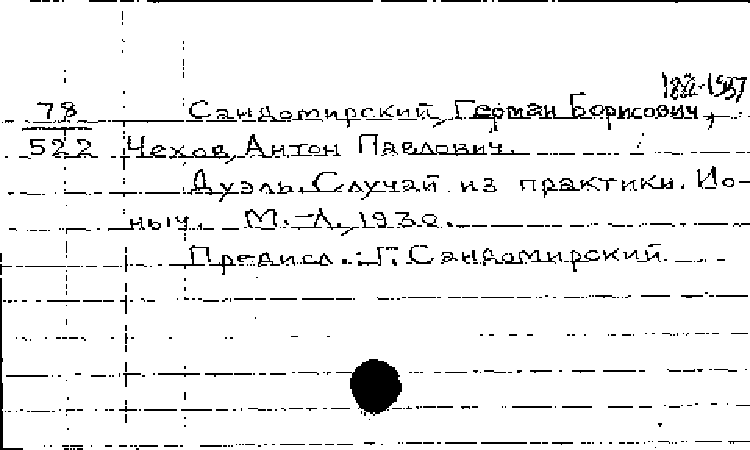 78 Сандомирский, Герман Борисович,
522 Чехов, Антон Павлович.
Дуэль. Случай из практики. Ио-
ныч. М.-Л., 1930.
Предисл.: Г. Сандомирский.